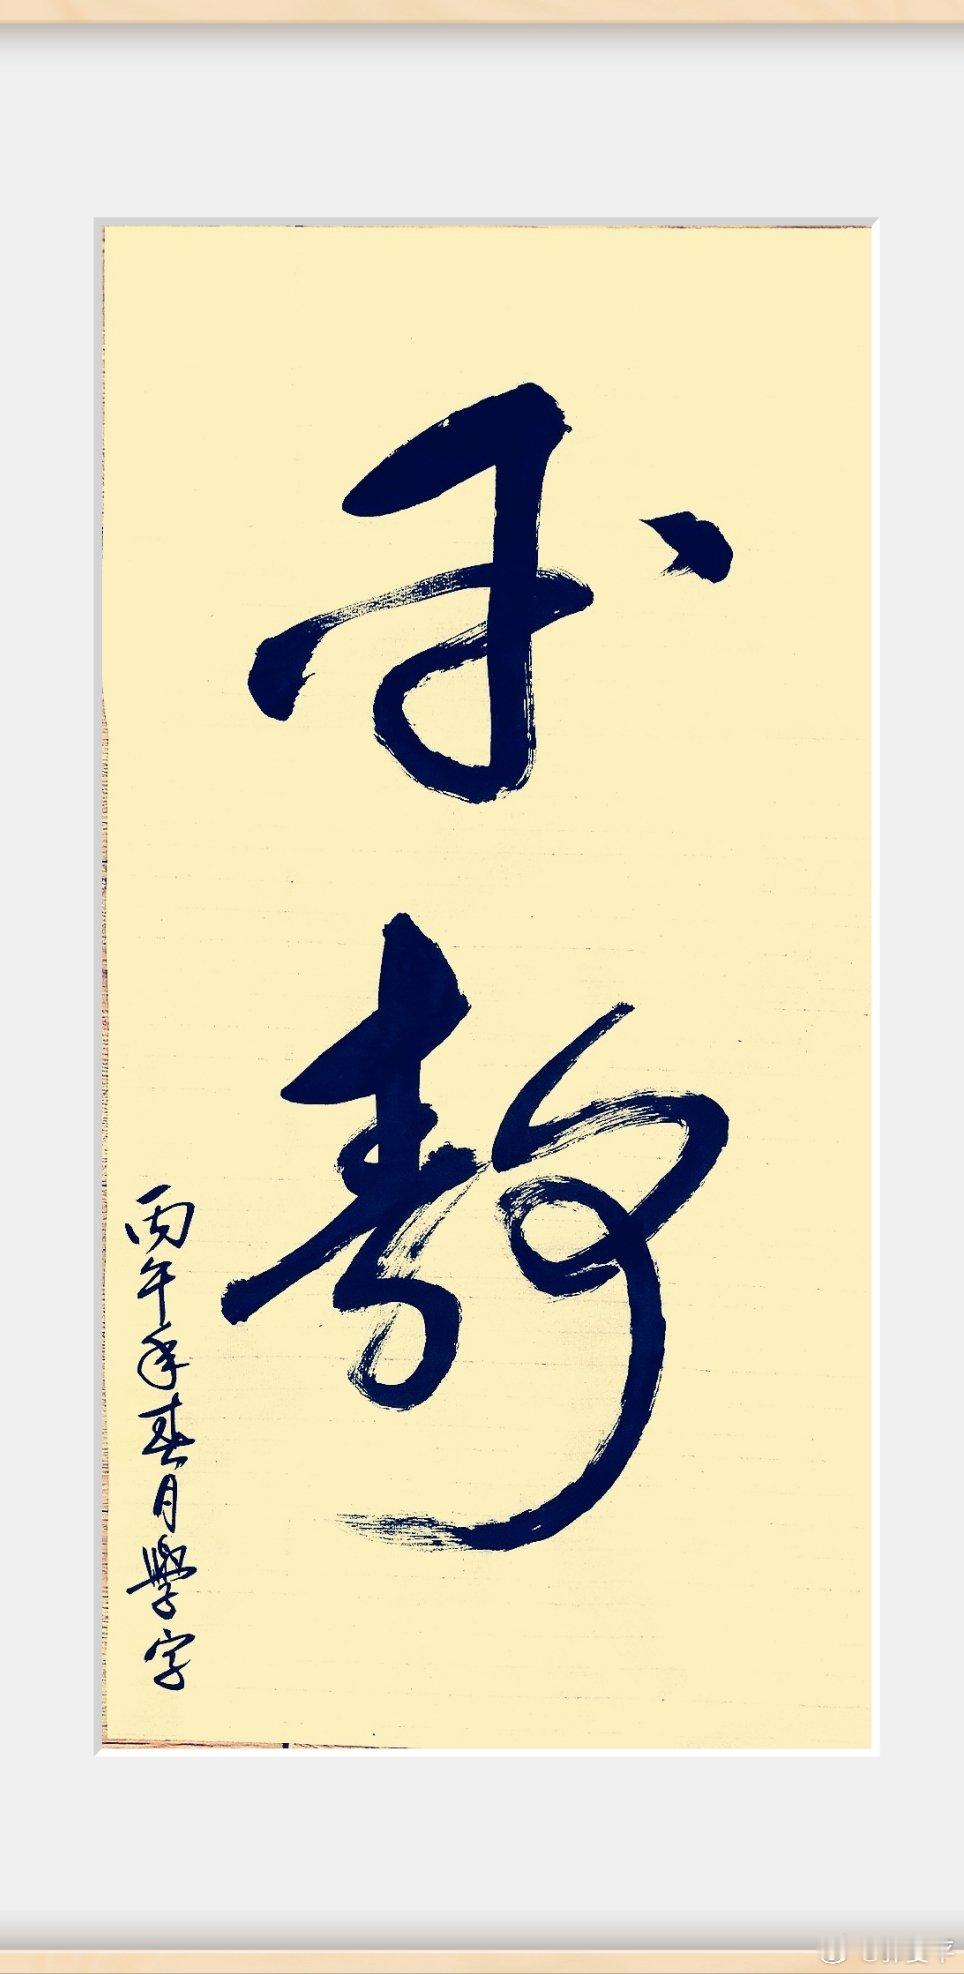 静
丙午年春月學字